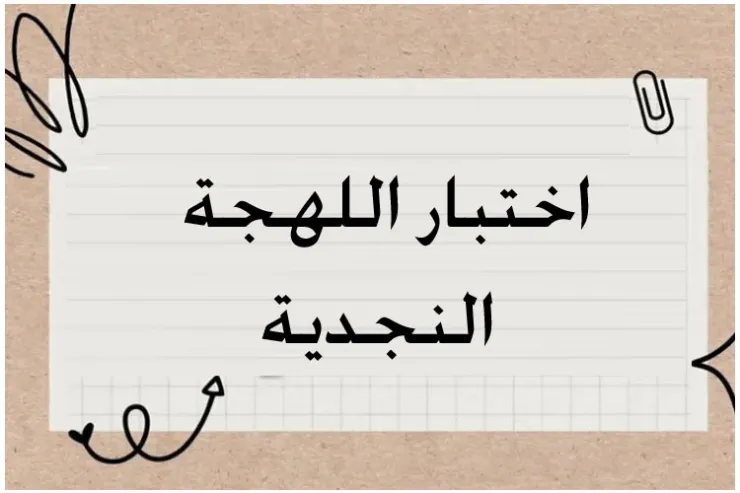 اختبار اللهجة
النجدية